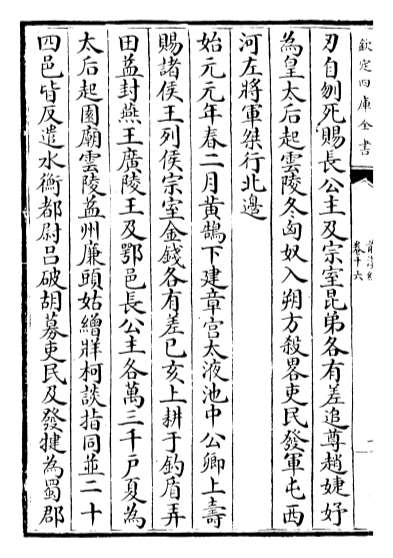 欽定四庫全書
前漢紀
卷十六
刃自刎死賜長公主及宗室昆弟各有差追尊趙婕妤
為皇太后起雲陵冬匈奴入朔方殺畧吏民發軍屯西
河左將軍桀行北邊
始元元年春二月黄鵠下建章宫太液池中公卿上壽
賜諸侯王列侯宗室金錢各有差已亥上耕于鈎盾弄
田益封燕王廣陵王及鄂邑長公主各萬三千戸夏為
太后起園廟雲陵益州廉頭姑繒牂柯談指同並二十
四邑皆反遣水衡都尉吕破胡募吏民及發揵為蜀郡